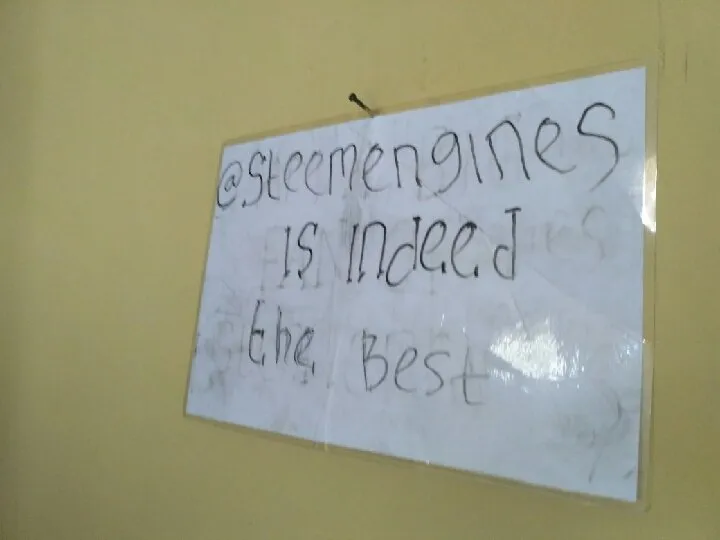 @Steemengines
is indeed
the Best